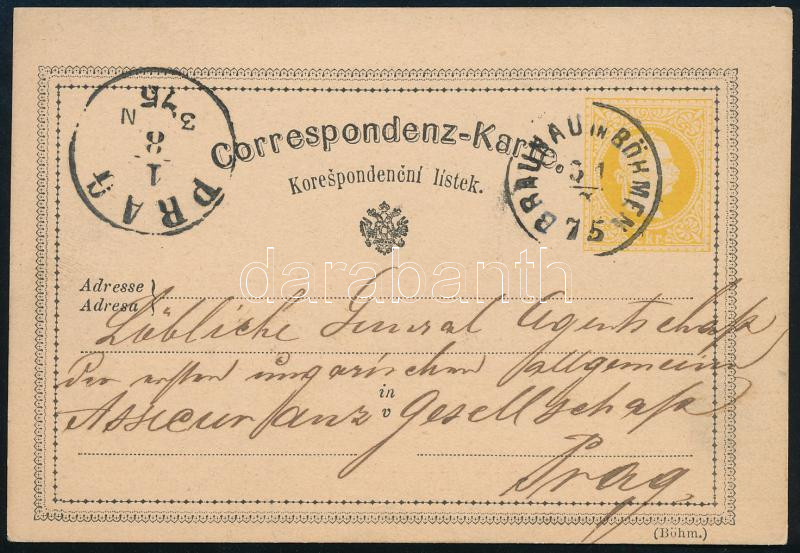 Correspondenz-Karte.
Korešpondenční lístek.
PRAG
1
8
3 75
N
BRAUNAU IN BÖHMEN
31
7
75
Kr.
darabanth
Adresse
Adresa
Löbliche General Agentschaft
Der ersten ungarischen allgemeinen
in
v
Assicuranz Gesellschaft
Prag
(Böhm.)